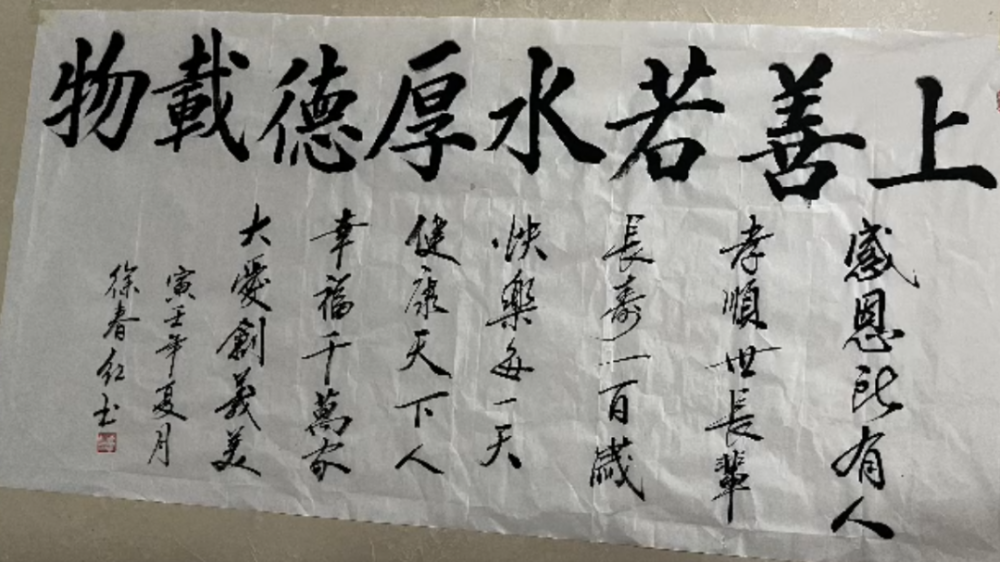 上善若水厚德載物
感恩所有人
孝順世長輩
長壽一百歲
快樂每一天
健康天下人
幸福千萬家
大愛創義美
寅壬年夏月
徐春红书